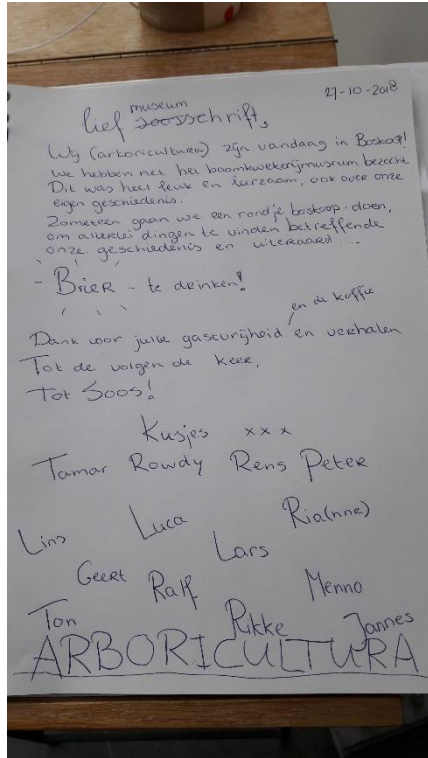 27-10-2018
museum
lief soosschrift,
Wij (arboricultura) zijn vandaag in Boskoop!
we hebben net het boomkwekerijmuseum bezocht.
Dit was heel leuk en leerzaam, ook over onze
eigen geschiedenis.
Zometeen gaan we een rondje boskoop doen,
om allerlei dingen te vinden betreffende
onze geschiedenis en uiteraard...
- BIER - te drinken!
en de koffie
Dank voor jullie gastvrijheid en verhalen
Tot de volgende keer,
Tot Soos!
Kusjes xxx
Tamar Rowdy Rens Peter
Luca Ria(nne)
Lars
Geert Ralf Menno
Ton Rikke Jannes
ARBORICULTURA